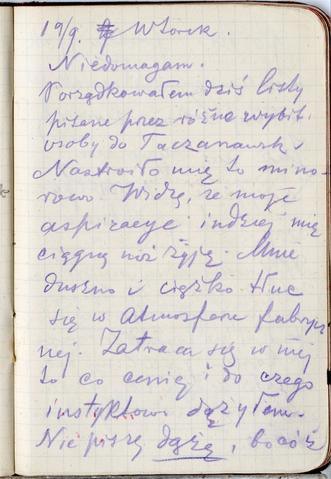 19/9. Wtorek.
Niedomagam.
Porządkowałem dziś listy
pisane przez różne wybit.
osoby do Taczanowsk.
Nastroiło mię to mino-
rowo Widzę, że moje
aspiracye indziej mię
ciągną niż żyję. Mnie
duszno i ciężko tłuc
się w atmosferze fabrycz
nej. Zatraca się w niej
to co cenię i do czego
instyktowo dążyłem.
Nie piszę dążę, bo cóż